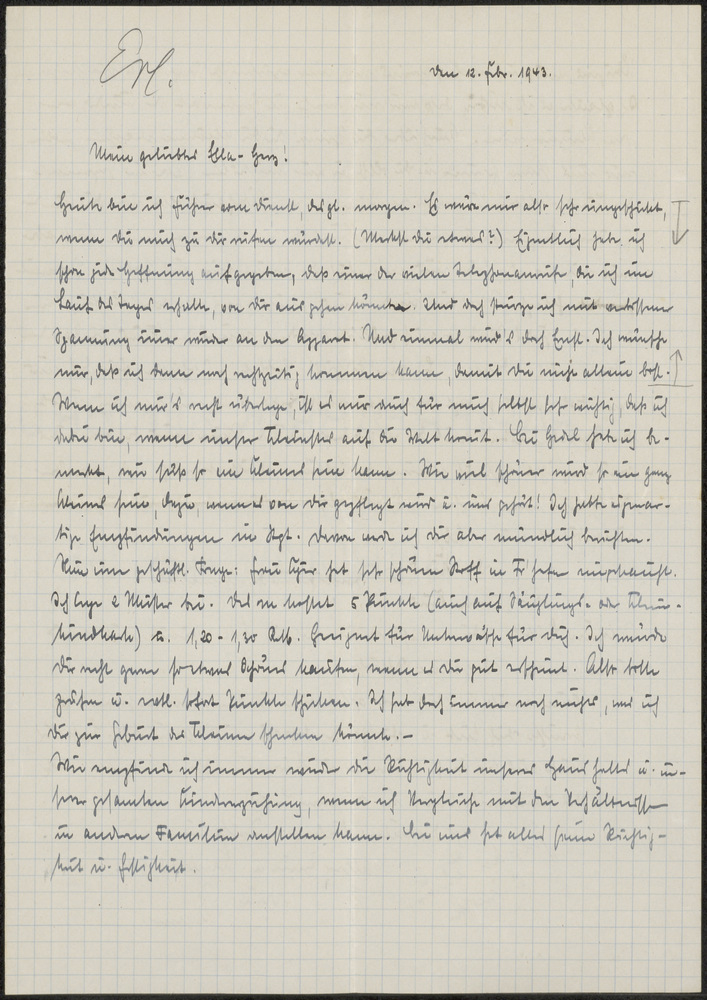 Erl.
den 12. Febr. 1943.
Mein geliebtes Ella-Herz!
Heute bin ich früher vom Dienst, desgl. morgen. Es wäre mir also sehr ungeschickt,
wenn Du mich zu Dir rufen würdest. (Merkst Du etwas?) Eigentlich habe ich
schon jede Hoffnung aufgegeben, daß einer der vielen Telephonanrufe, die ich im
Lauf des Tages erhalte, von Dir aus gehen könnte. Und doch stürze ich mit
Spannung immer wieder an den Apparat. Und einmal wird's doch Ernst. Ich wünsche
mir, daß ich dann noch rechtzeitig kommen kann, damit Du nicht alleine bist.
Wenn ich mir's recht überlege, ist es mir auch für mich selbst sehr wichtig, daß ich
dabei bin, wenn unser Kleinstes auf die Welt kommt. Bei habe ich be-
merkt, wie süß so ein Kleines sein kann. Wie viel schöner wird so ein ganz
Kleines sein, dazu, wenn es von Dir gepflegt wird u. uns gehört! Ich hatte eigenar-
tige Empfindungen in. Davon werde ich Dir aber mündlich berichten.
Nun eine geschäftl. Frage: Frau hat sehr schönen Stoff in eingekauft.
Ich lege 2 Muster bei. Der m kostet 5 Punkte (auch auf Säuglings- oder Klein-
kindkarte) u. 1,20 - 1,30 RM. Geeignet für Unterwäsche für Dich. Ich würde
Dir recht gern so etwas Schönes kaufen, wenn es Dir gut erscheint. Also bitte
prüfen u. evtl. sofort Punkte schicken. Ich hab doch immer noch nichts, was ich
Dir zur Geburt des Kleinen schenken könnte. –
Wie empfinde ich immer wieder die Richtigkeit unseres Haushaltes u. un-
serer gesamten Kindererziehung, wenn ich Vergleiche mit den Verhältnissen
in anderen Familien anstellen kann. Bei uns hat alles seine Richtig-
keit u. Festigkeit.